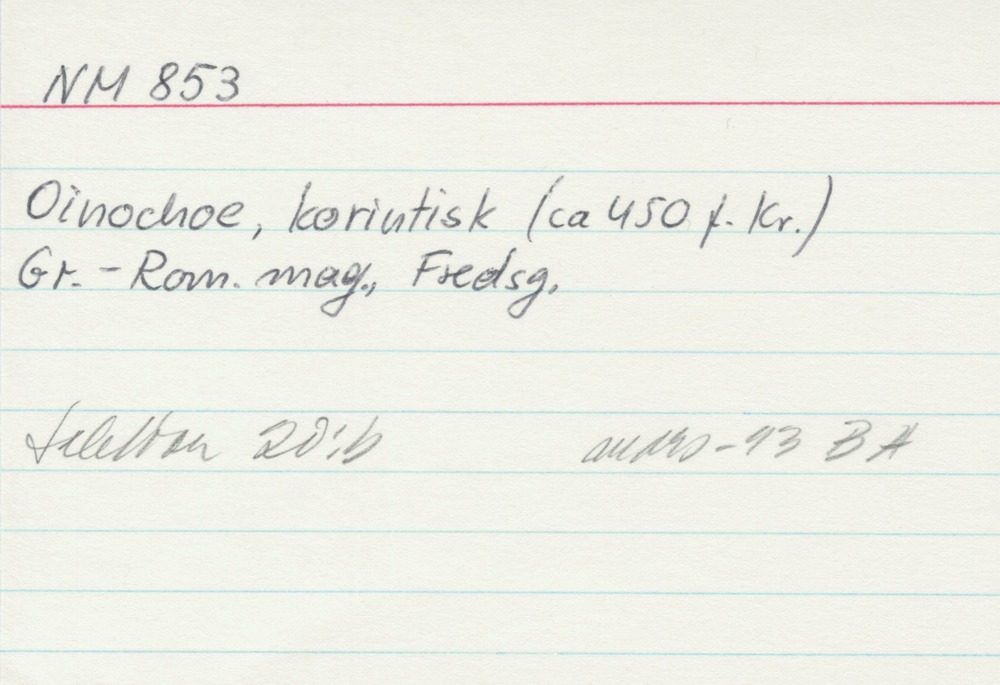 NM 853
Oinochoe, korintisk (ca 450 f. Kr.)
Gr.-Rom. mag., Fredsg.
-93 BA